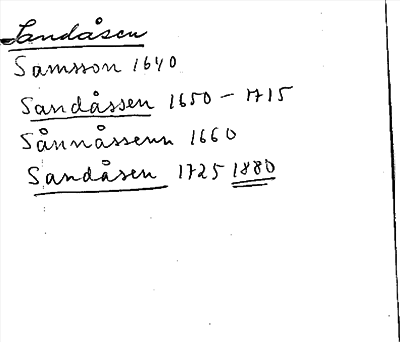 Sandåsen
Samsson 1640
Sandåssen 1650 - 1715
Sånnåssenn 1660
Sandåsen 1725 1880